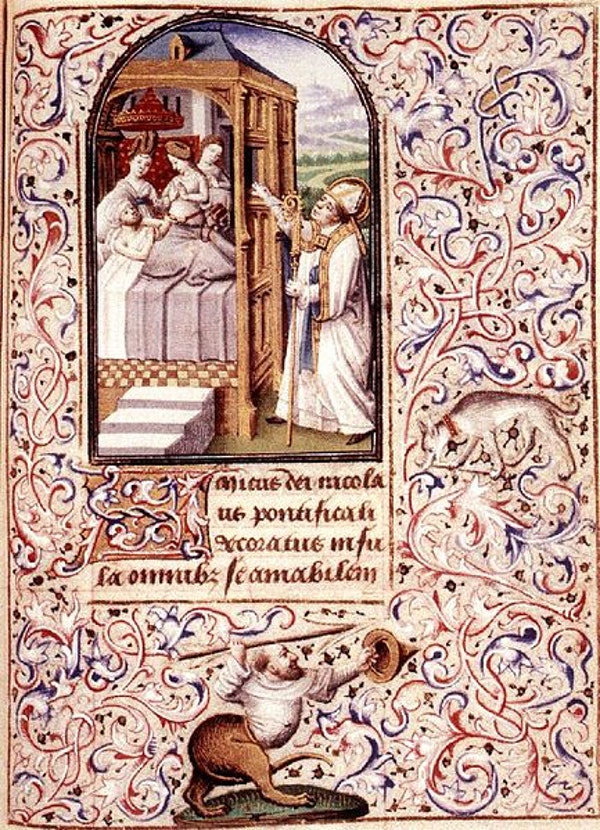 Amicus dei nicola
us pontificali
decoratus infu
la omnibꝫ se amabilem